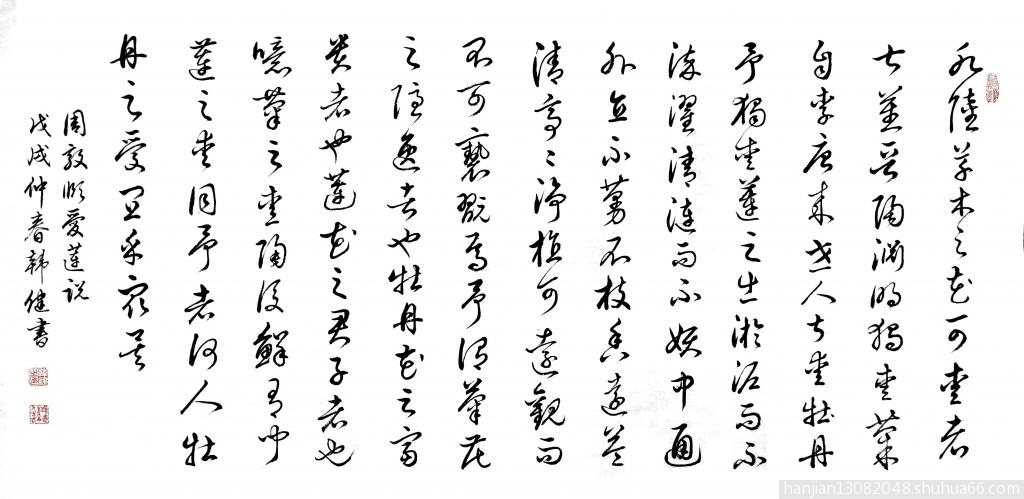 水陸草木之花可愛者
甚蕃晉陶淵明獨愛菊
自李唐来世人甚愛牡丹
予獨愛蓮之出淤泥而不
染濯清漣而不妖中通
外直不蔓不枝香遠益
清亭〻淨植可遠觀而
不可褻翫焉予謂菊花
之隱逸者也牡丹花之富
貴者也蓮花之君子者也
噫菊之愛陶後鮮有聞
蓮之愛同予者何人牡
丹之愛宜乎衆矣
周敦頤愛蓮説
戊戌仲春韓健書
hanjian13082048.shuhua66.com